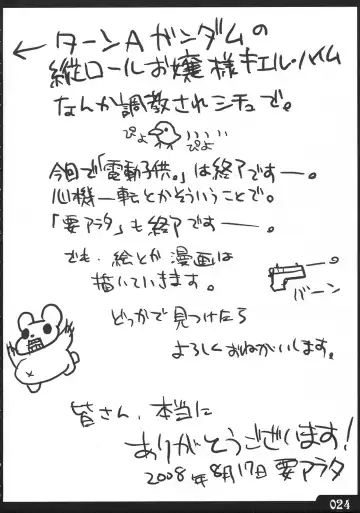 ← ターンAガンダムの
縦ロールお嬢様キエル・ハイム
なんか調教されシチュで。
ぴよ ぴよ
今回で「電動子供。」は終了ですー。
心機一転とかそういうことで。
「要アラタ」も終了ですー。
でも、絵とか漫画は
描いていきます。
バーン
どっかで見つけたら
よろしくおねがいします。
皆さん、本当に
ありがとうございます!
2008年8月17日 要アラタ
024